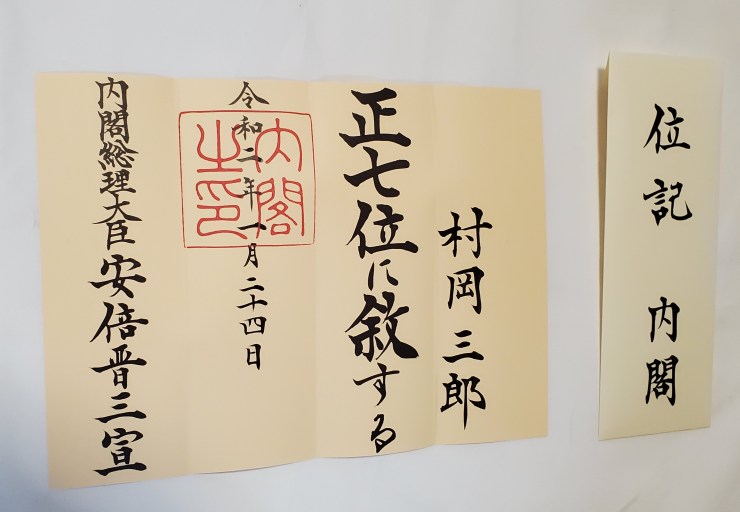 村岡三郎
正七位に敘する
令和二年一月二十四日
内閣之印
内閣総理大臣安倍晋三宣
位記 内閣